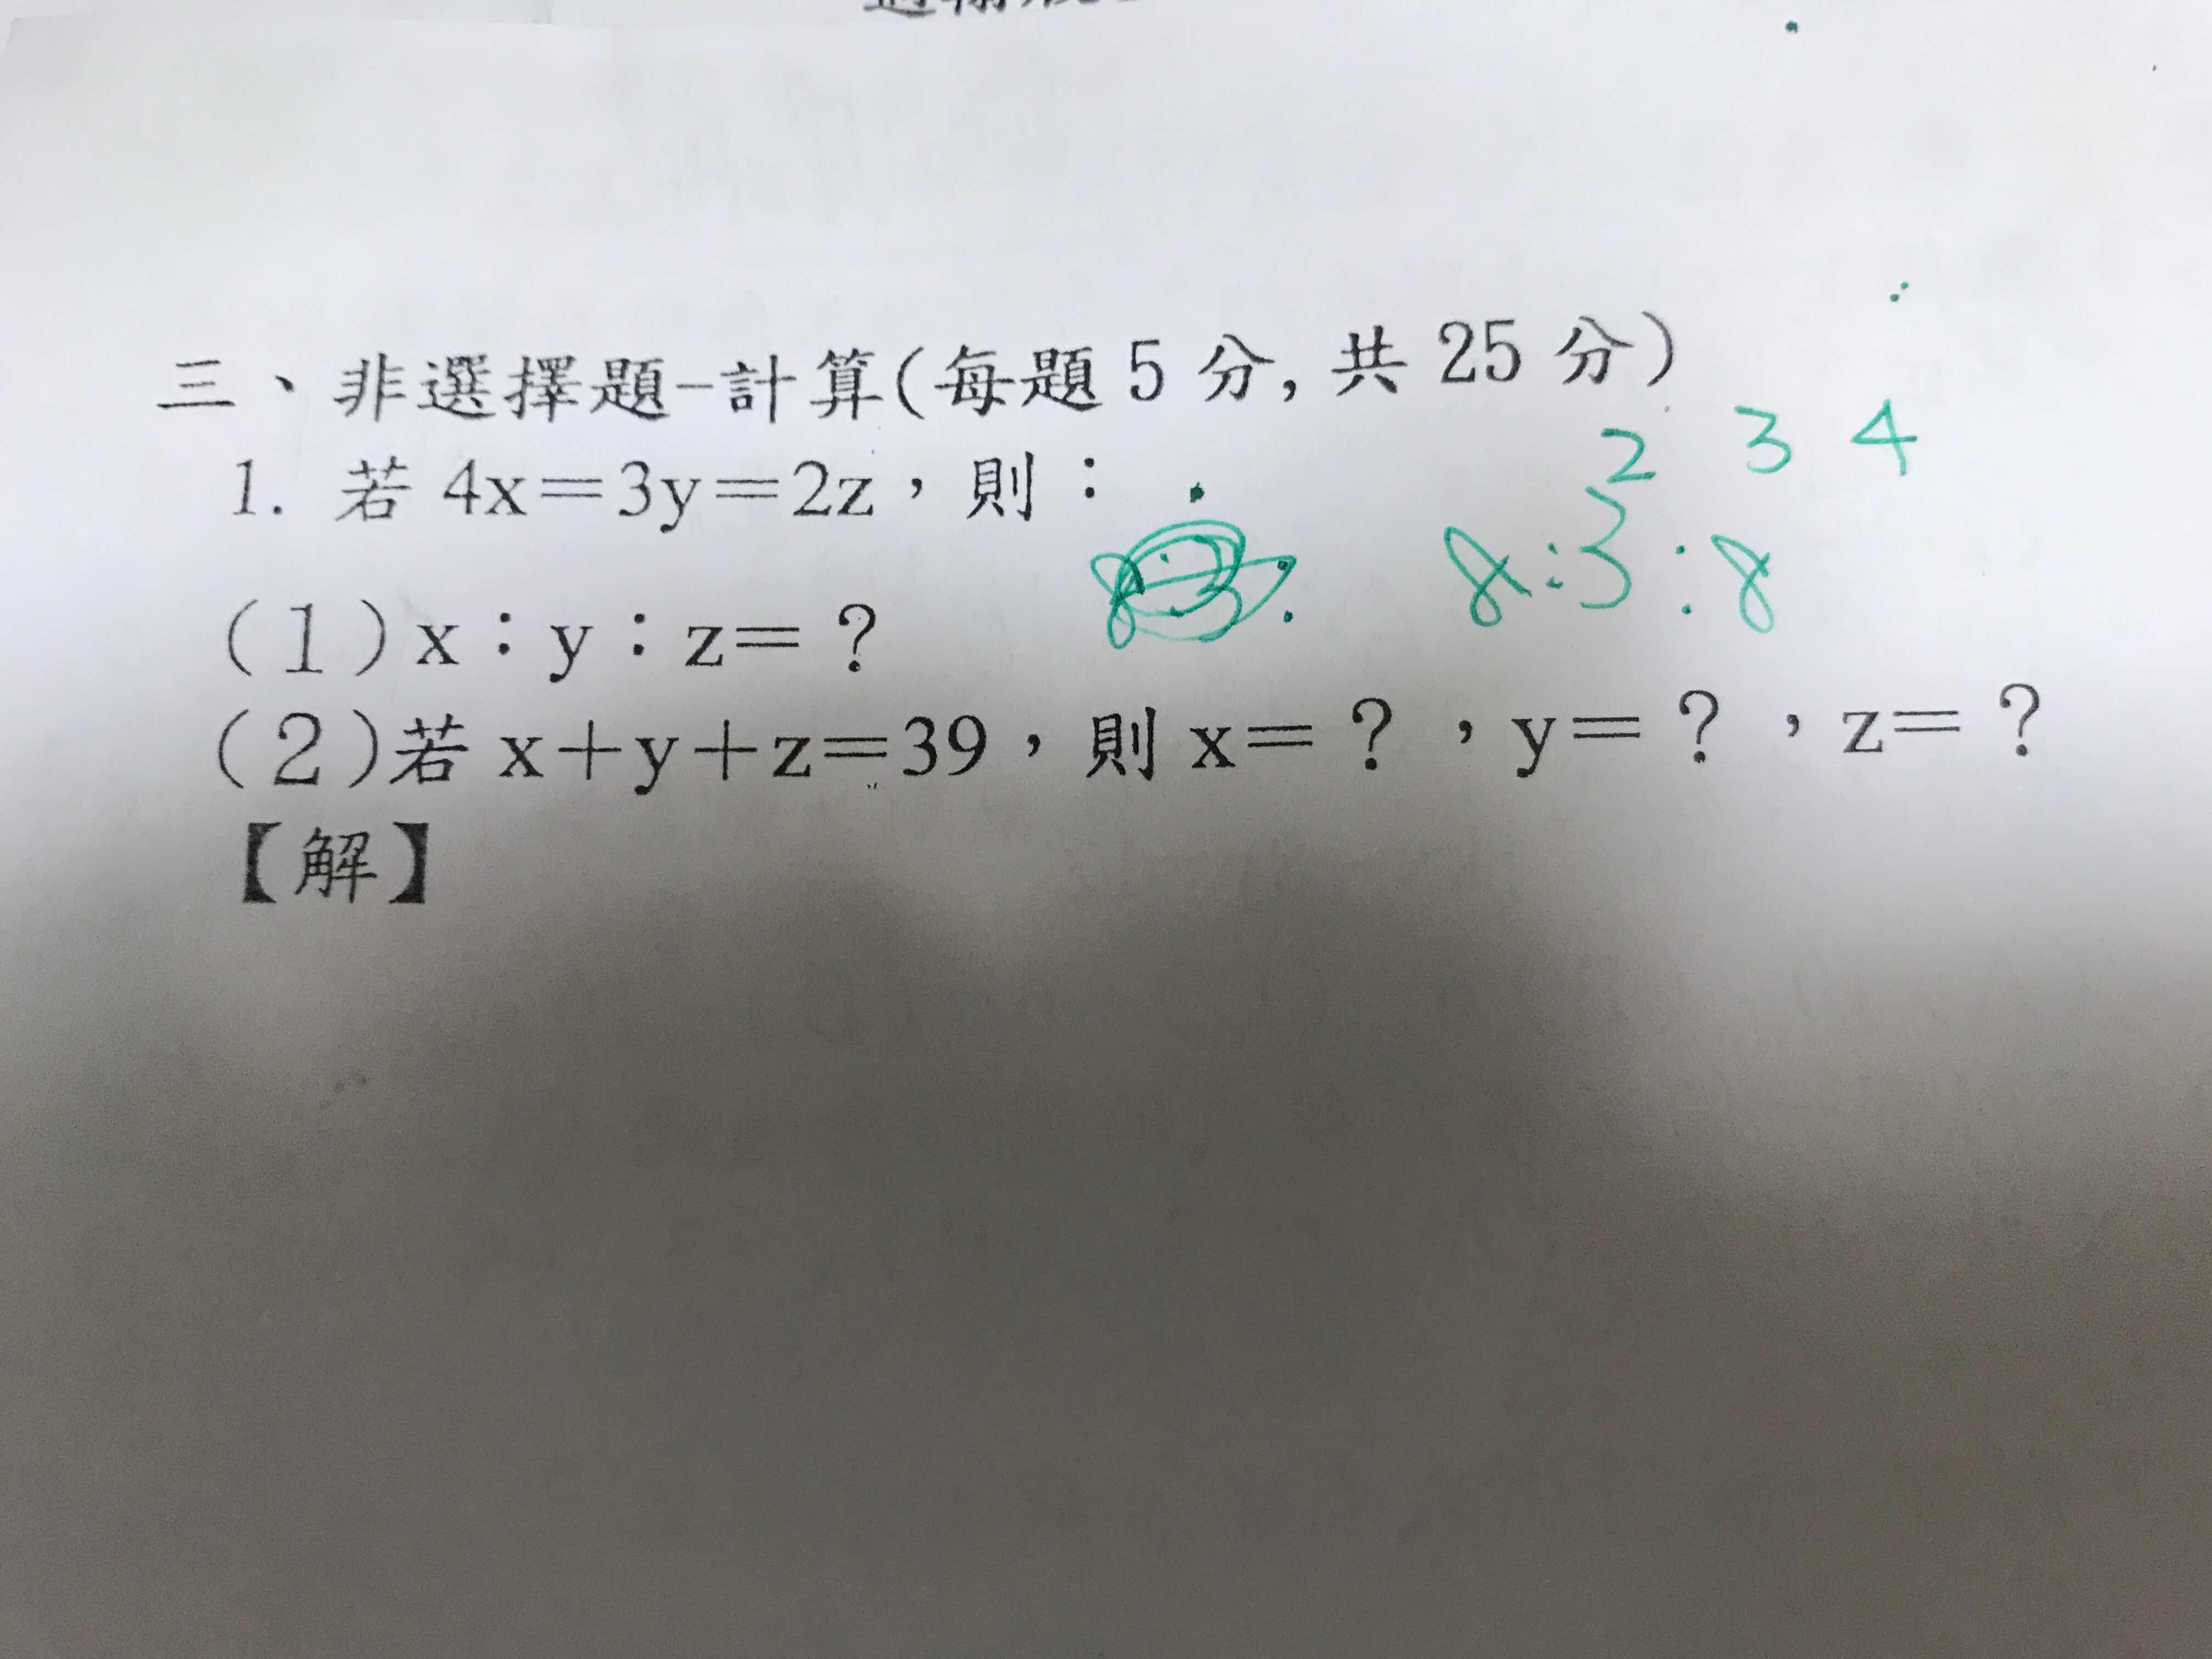 三、非選擇題-計算(每題 5 分, 共 25 分)
2 3 4
1. 若 4x=3y=2z，則：
8:3:8
(1) x：y：z=？
(2)若 x+y+z=39，則 x=？，y=？，z=？
【解】